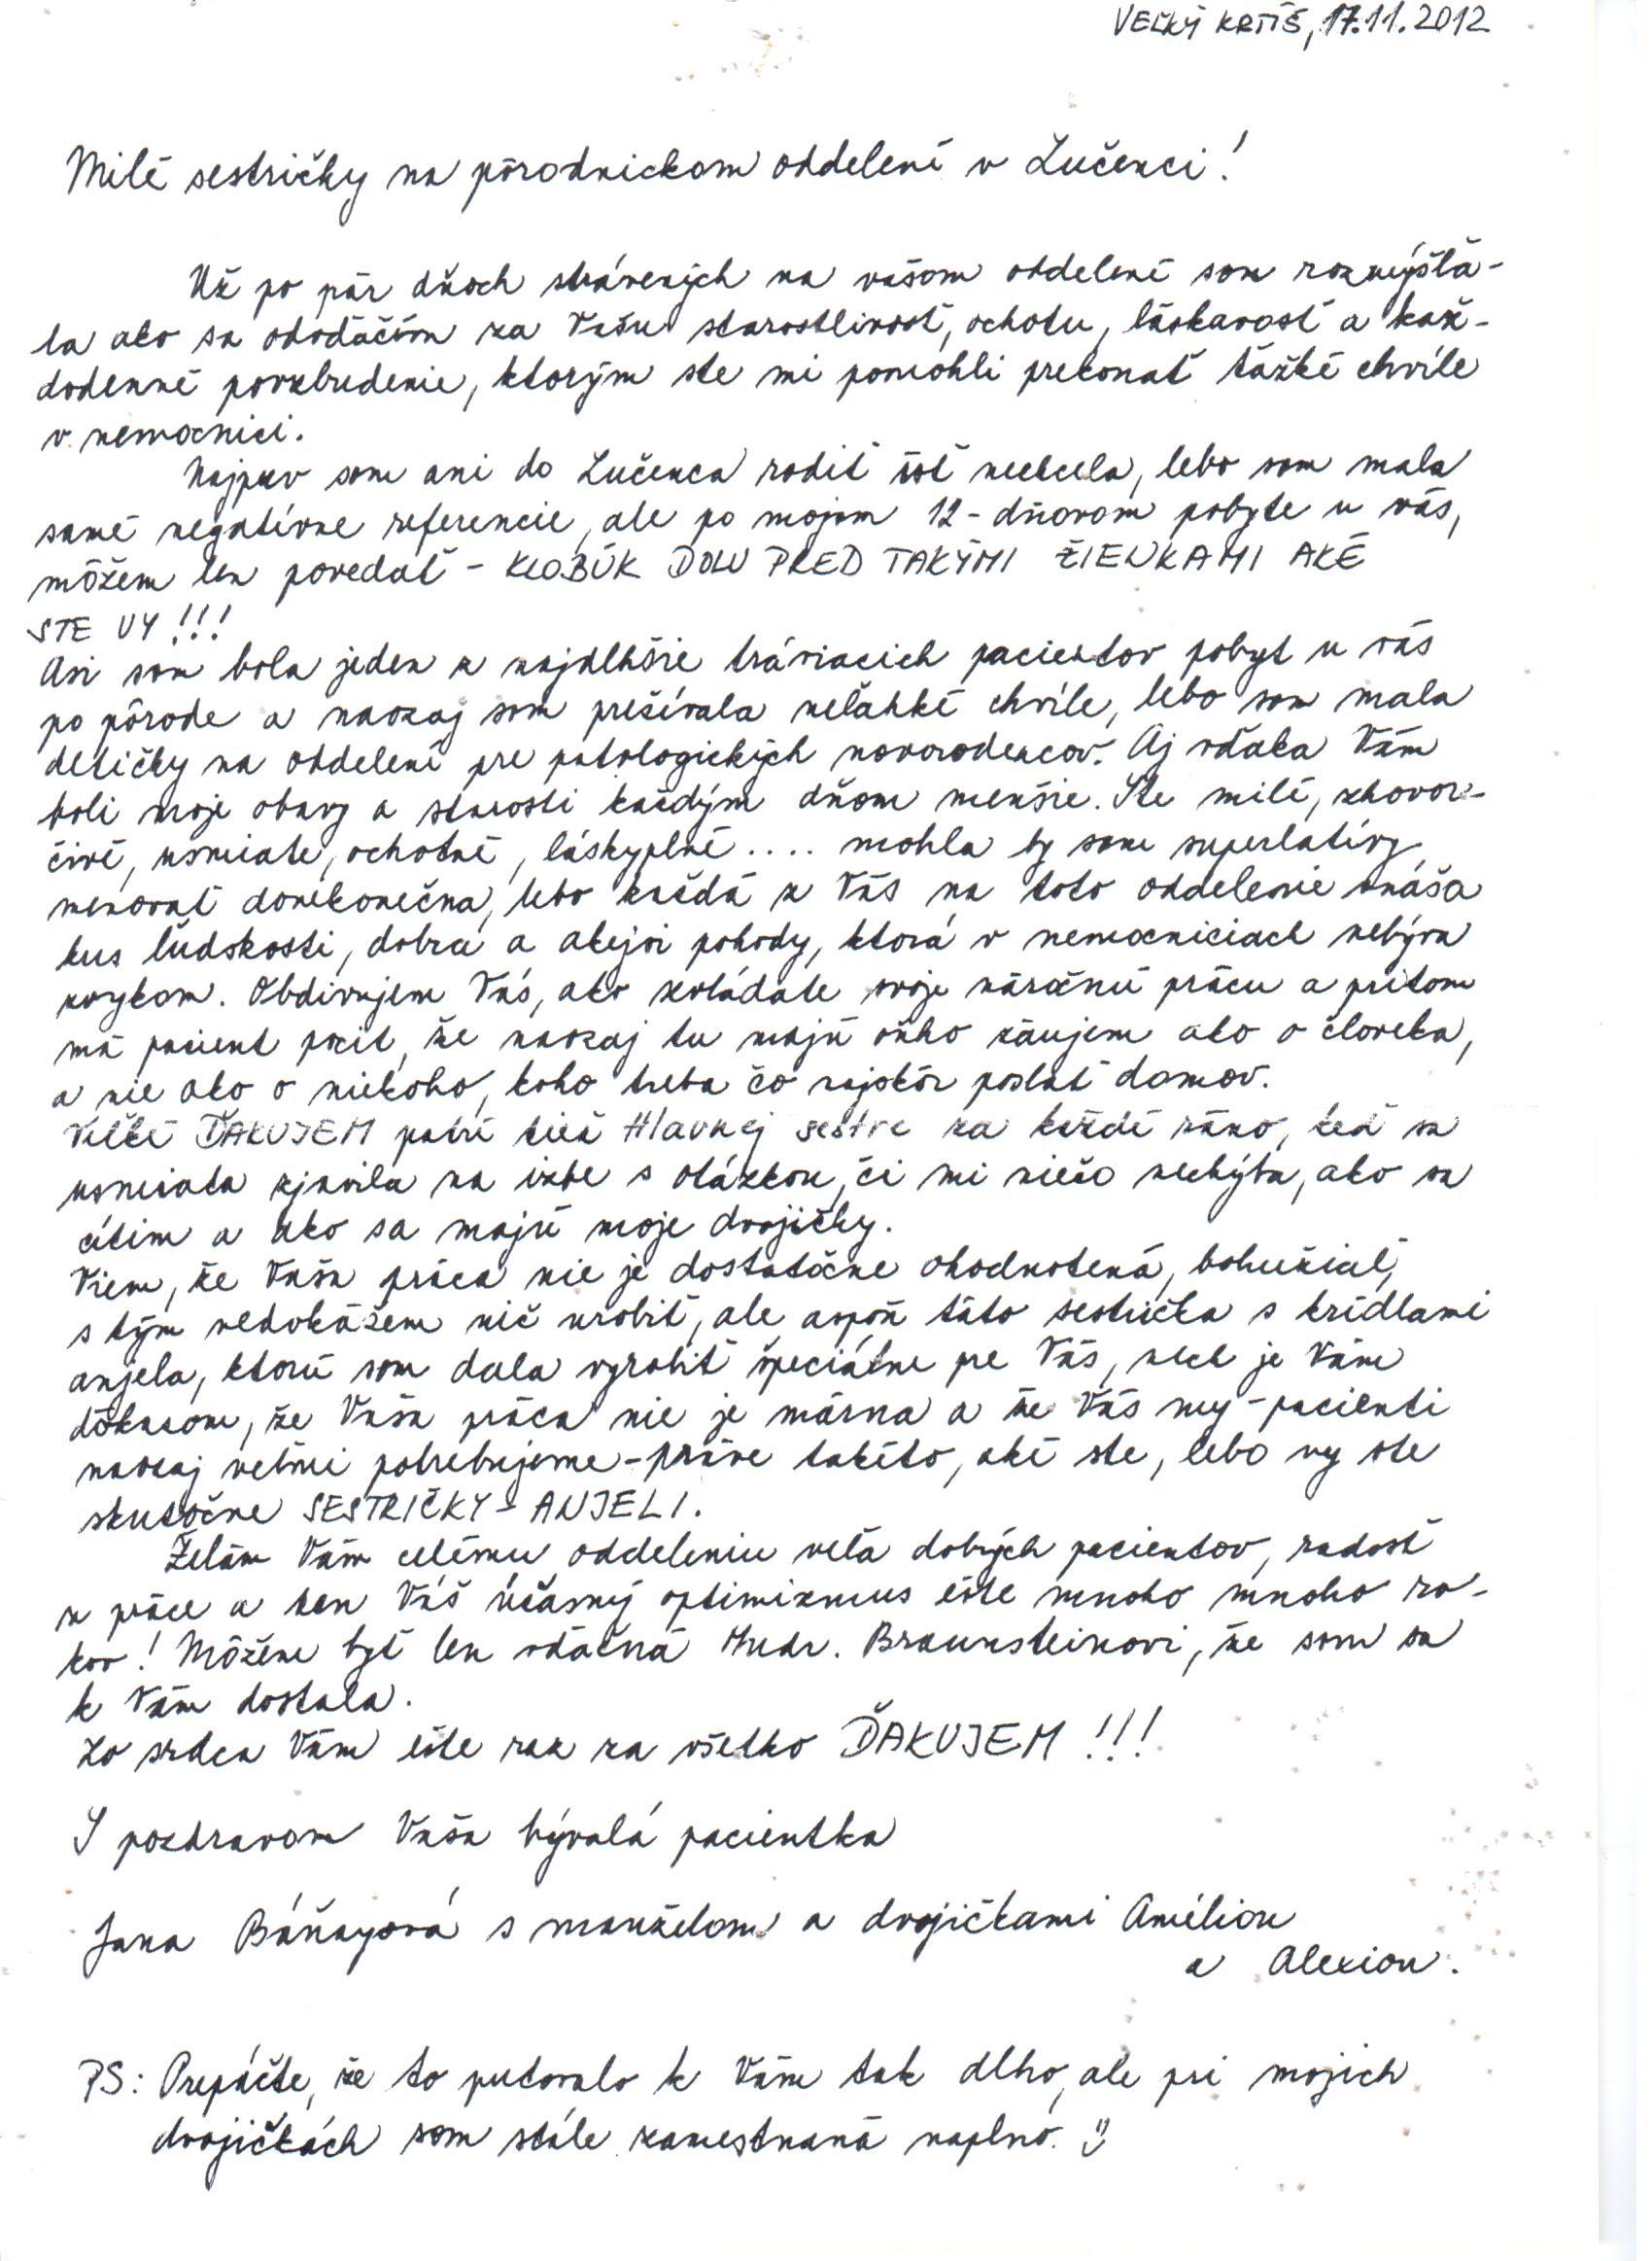 VEĽKÝ KRTÍŠ, 17.11.2012
Milé sestričky na pôrodnickom oddelení v Lučenci!
Už po pár dňoch strávených na vašom oddelení som rozmýšľa-
la ako sa odvďačím za Vašu starostlivosť, ochotu, láskavosť a kaž-
dodenné povzbudenie, ktorým ste mi pomohli prekonať ťažké chvíle
v nemocnici.
Najprv som ani do Lučenca rodiť ísť nechcela, lebo som mala
samé negatívne referencie, ale po mojom 12-dňovom pobyte u vás,
môžem len povedať - KLOBÚK DOLU PRED TAKÝMI ŽIENKAMI AKÉ
STE VY!!!
Asi som bola jeden z najdlhšie tráviacich pacientov pobyt u vás
po pôrode a naozaj som prežívala neľahké chvíle, lebo som mala
detičky na oddelení pre patologických novorodencov. Aj vďaka Vám
boli moje obavy a starosti každým dňom menšie. Ste milé, zhovor-
čivé, usmiate, ochotné, láskyplné .... mohla by som superlatívy
menovať donekonečna, lebo každá z Vás na toto oddelenie vnáša
kus ľudskosti, dobra a akejsi pohody, ktorá v nemocniciach nebýva
zvykom. Obdivujem Vás, ako zvládate svoje náročnú prácu a pritom
má pacient pocit, že naozaj tu majú oňho záujem ako o človeka,
a nie ako o niekoho, koho treba čo najskôr poslať domov.
Veľké ĎAKUJEM patrí tiež Hlavnej sestre za každé ráno, keď sa
usmiata zjavila na izbe s otázkou, či mi niečo nechýba, ako sa
cítim a ako sa majú moje dvojičky.
Viem, že Vaša práca nie je dostatočne ohodnotená, bohužiaľ,
s tým nedokážem nič urobiť, ale aspoň táto sestrička s krídlami
anjela, ktorú som dala vyrobiť špeciálne pre Vás, nech je Vám
dôkazom, že Vaša práca nie je márna a že Vás my - pacienti
naozaj veľmi potrebujeme - práve takéto, aké ste, lebo vy ste
skutočne SESTRIČKY - ANJELI.
Želám Vám celému oddeleniu veľa dobrých pacientov, radosť
z práce a ten Váš úžasný optimizmus ešte mnoho mnoho ro-
kov! Môžem byť len vďačná Mudr. Braunsteinovi, že som sa
k Vám dostala.
Zo srdca Vám ešte raz za všetko ĎAKUJEM!!!
S pozdravom Vaša bývalá pacientka
Jana Báňayová s manželom a dvojičkami Améliou
a Alexiou.
PS: Prepáčte, že to putovalo k Vám tak dlho, ale pri mojich
dvojičkách som stále zamestnaná naplno. :)